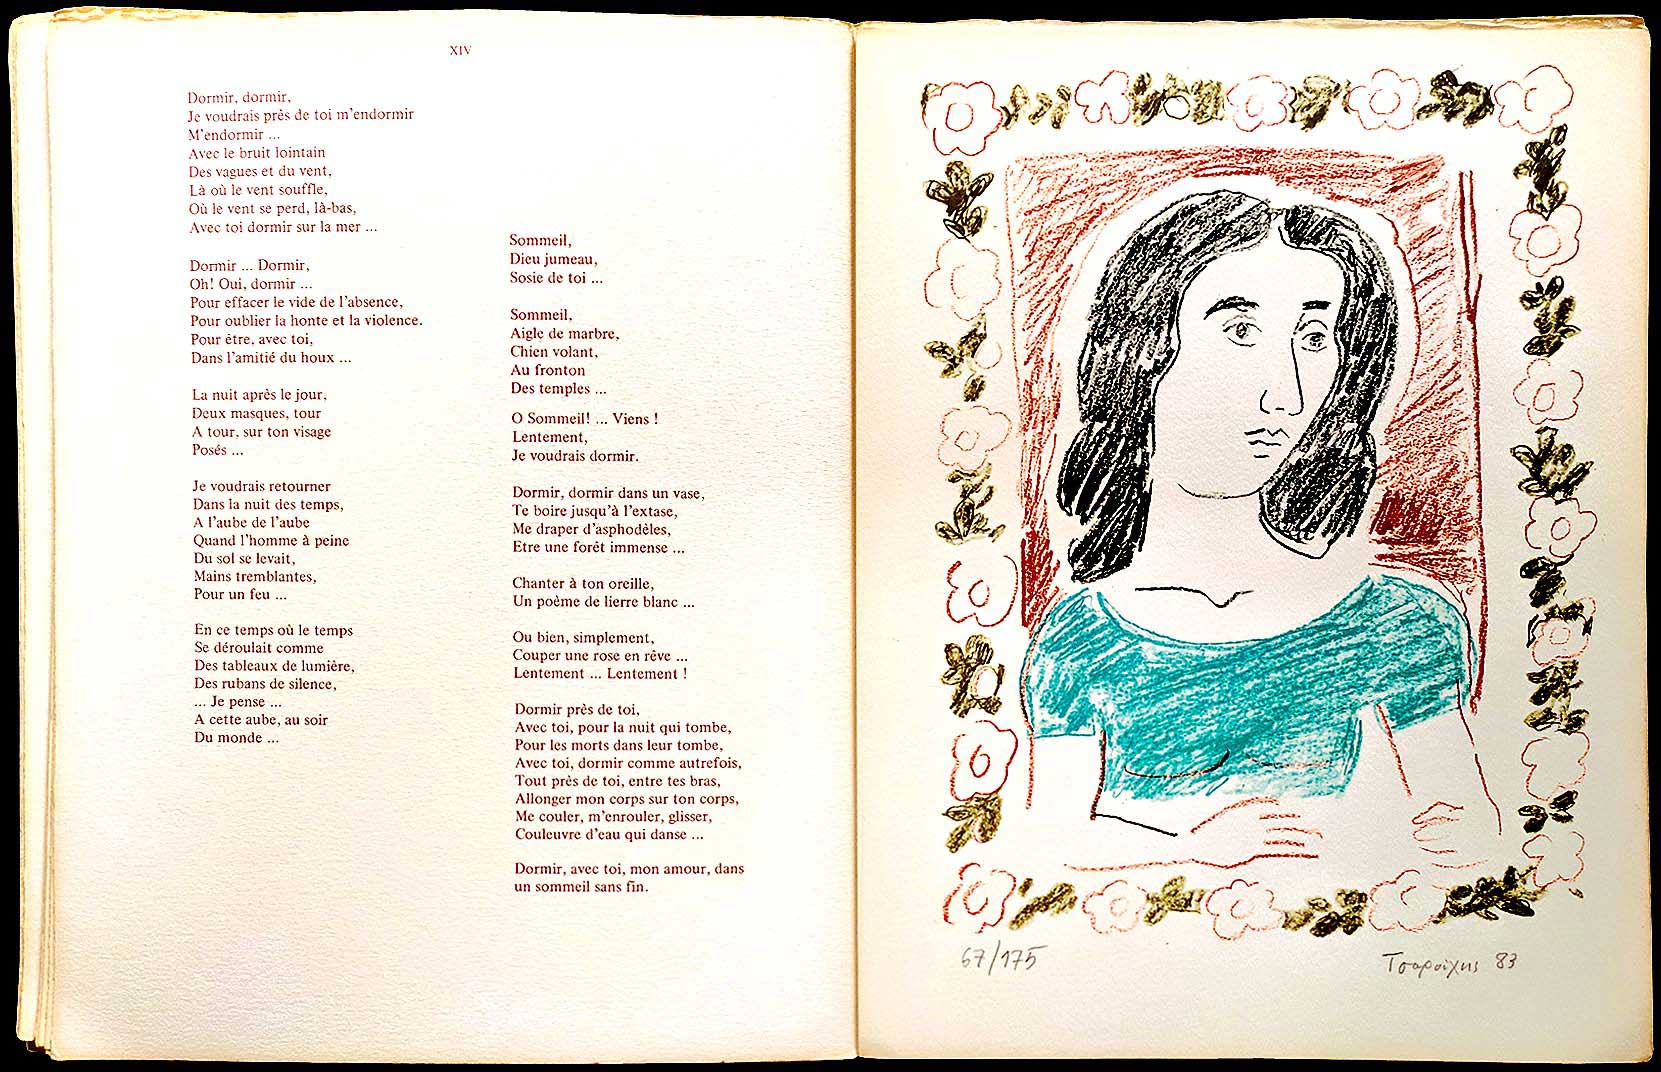 XIV
Dormir, dormir,
Je voudrais près de toi m'endormir
M'endormir ...
Avec le bruit lointain
Des vagues et du vent,
Là où le vent souffle,
Où le vent se perd, là-bas,
Avec toi dormir sur la mer ...
Dormir ... Dormir,
Oh! Oui, dormir ...
Pour effacer le vide de l'absence,
Pour oublier la honte et la violence.
Pour être, avec toi,
Dans l'amitié du houx ...
La nuit après le jour,
Deux masques, tour
A tour, sur ton visage
Posés ...
Je voudrais retourner
Dans la nuit des temps,
A l'aube de l'aube
Quand l'homme à peine
Du sol se levait,
Mains tremblantes,
Pour un feu ...
En ce temps où le temps
Se déroulait comme
Des tableaux de lumière,
Des rubans de silence,
... Je pense ...
A cette aube, au soir
Du monde ...
Sommeil,
Dieu jumeau,
Sosie de toi ...
Sommeil,
Aigle de marbre,
Chien volant,
Au fronton
Des temples ...
O Sommeil! ... Viens !
Lentement,
Je voudrais dormir.
Dormir, dormir dans un vase,
Te boire jusqu'à l'extase,
Me draper d'asphodèles,
Etre une forêt immense ...
Chanter à ton oreille,
Un poème de lierre blanc ...
Ou bien, simplement,
Couper une rose en rêve ...
Lentement ... Lentement !
Dormir près de toi,
Avec toi, pour la nuit qui tombe,
Pour les morts dans leur tombe,
Avec toi, dormir comme autrefois,
Tout près de toi, entre tes bras,
Allonger mon corps sur ton corps,
Me couler, m'enrouler, glisser,
Couleuvre d'eau qui danse ...
Dormir, avec toi, mon amour, dans
un sommeil sans fin.
67/175
Τσαρούχης 83